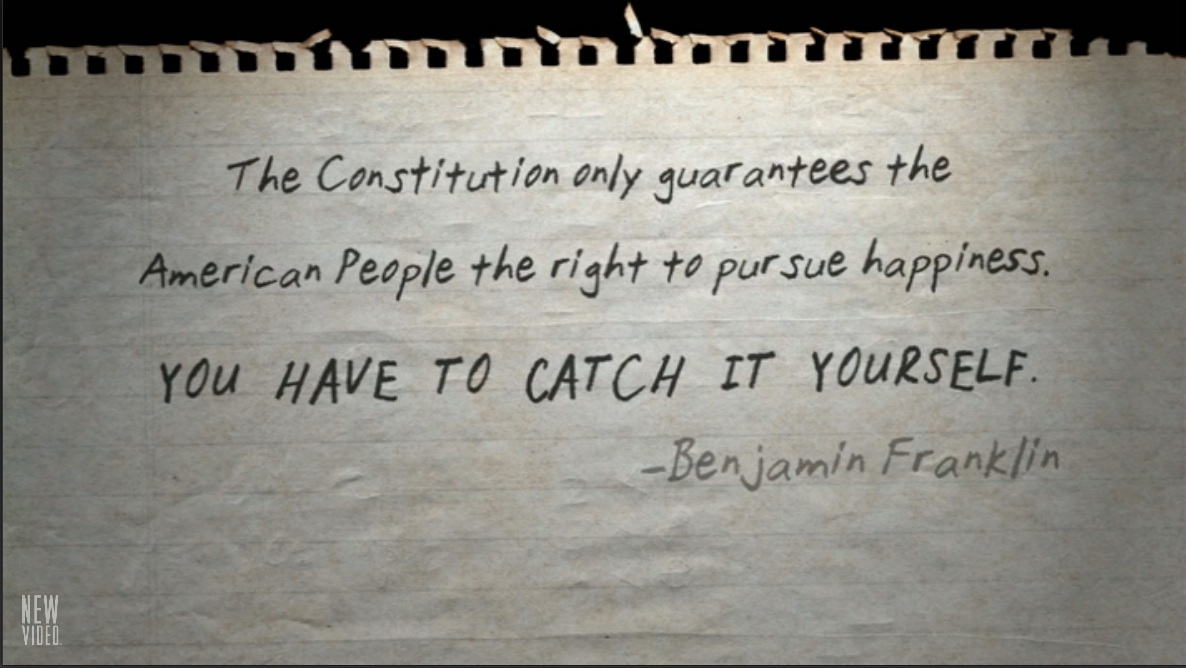 The Constitution only guarantees the
American People the right to pursue happiness.
YOU HAVE TO CATCH IT YOURSELF.
-Benjamin Franklin
NEW
VIDEO